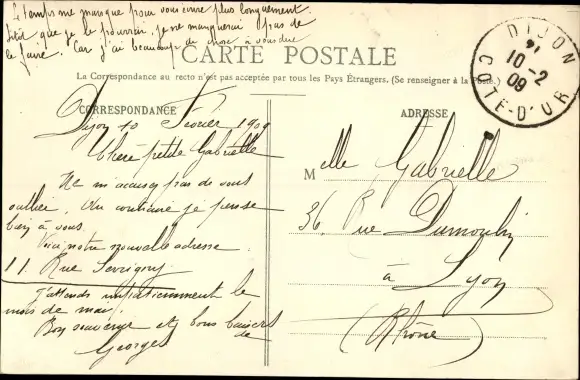 Le temps me manque pour vous écrire plus longuement.
Sitôt que je le pourrai, je ne manquerai pas de
le faire. Car j'ai beaucoup de chose à vous dire
CARTE POSTALE
La Correspondance au recto n'est pas acceptée par tous les Pays Étrangers. (Se renseigner à la Poste.)
DIJON
10-2
09
COTE-D'OR
CORRESPONDANCE
Dijon 10 Février 1909
Chère petite Gabrielle
Ne m'accusez pas de vous
oublier. Au contraire je pense
bien à vous.
Voici notre nouvelle adresse
11 Rue
J'attends impatiemment le
mois de mai.
Bon souvenir et bons baisers
de
Georges
ADRESSE
Melle Gabrielle
36 Rue Dumoulin
à
Lyon
(Rhône)